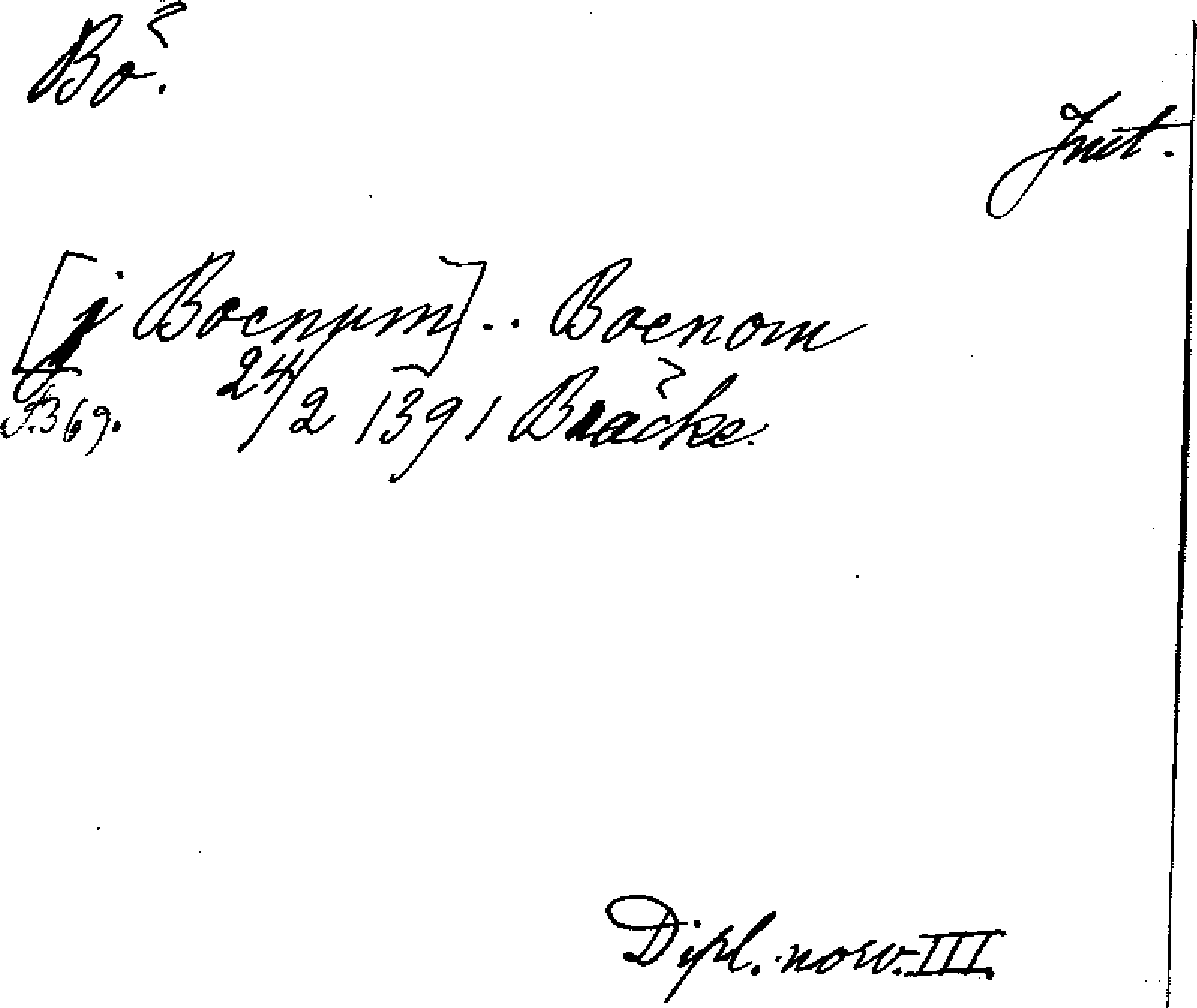 Bö.
Jmt.
[j Bœnnum].. Bœnom
S. 369. 24/2 1391 Bräcke.
Dipl. norv. III.